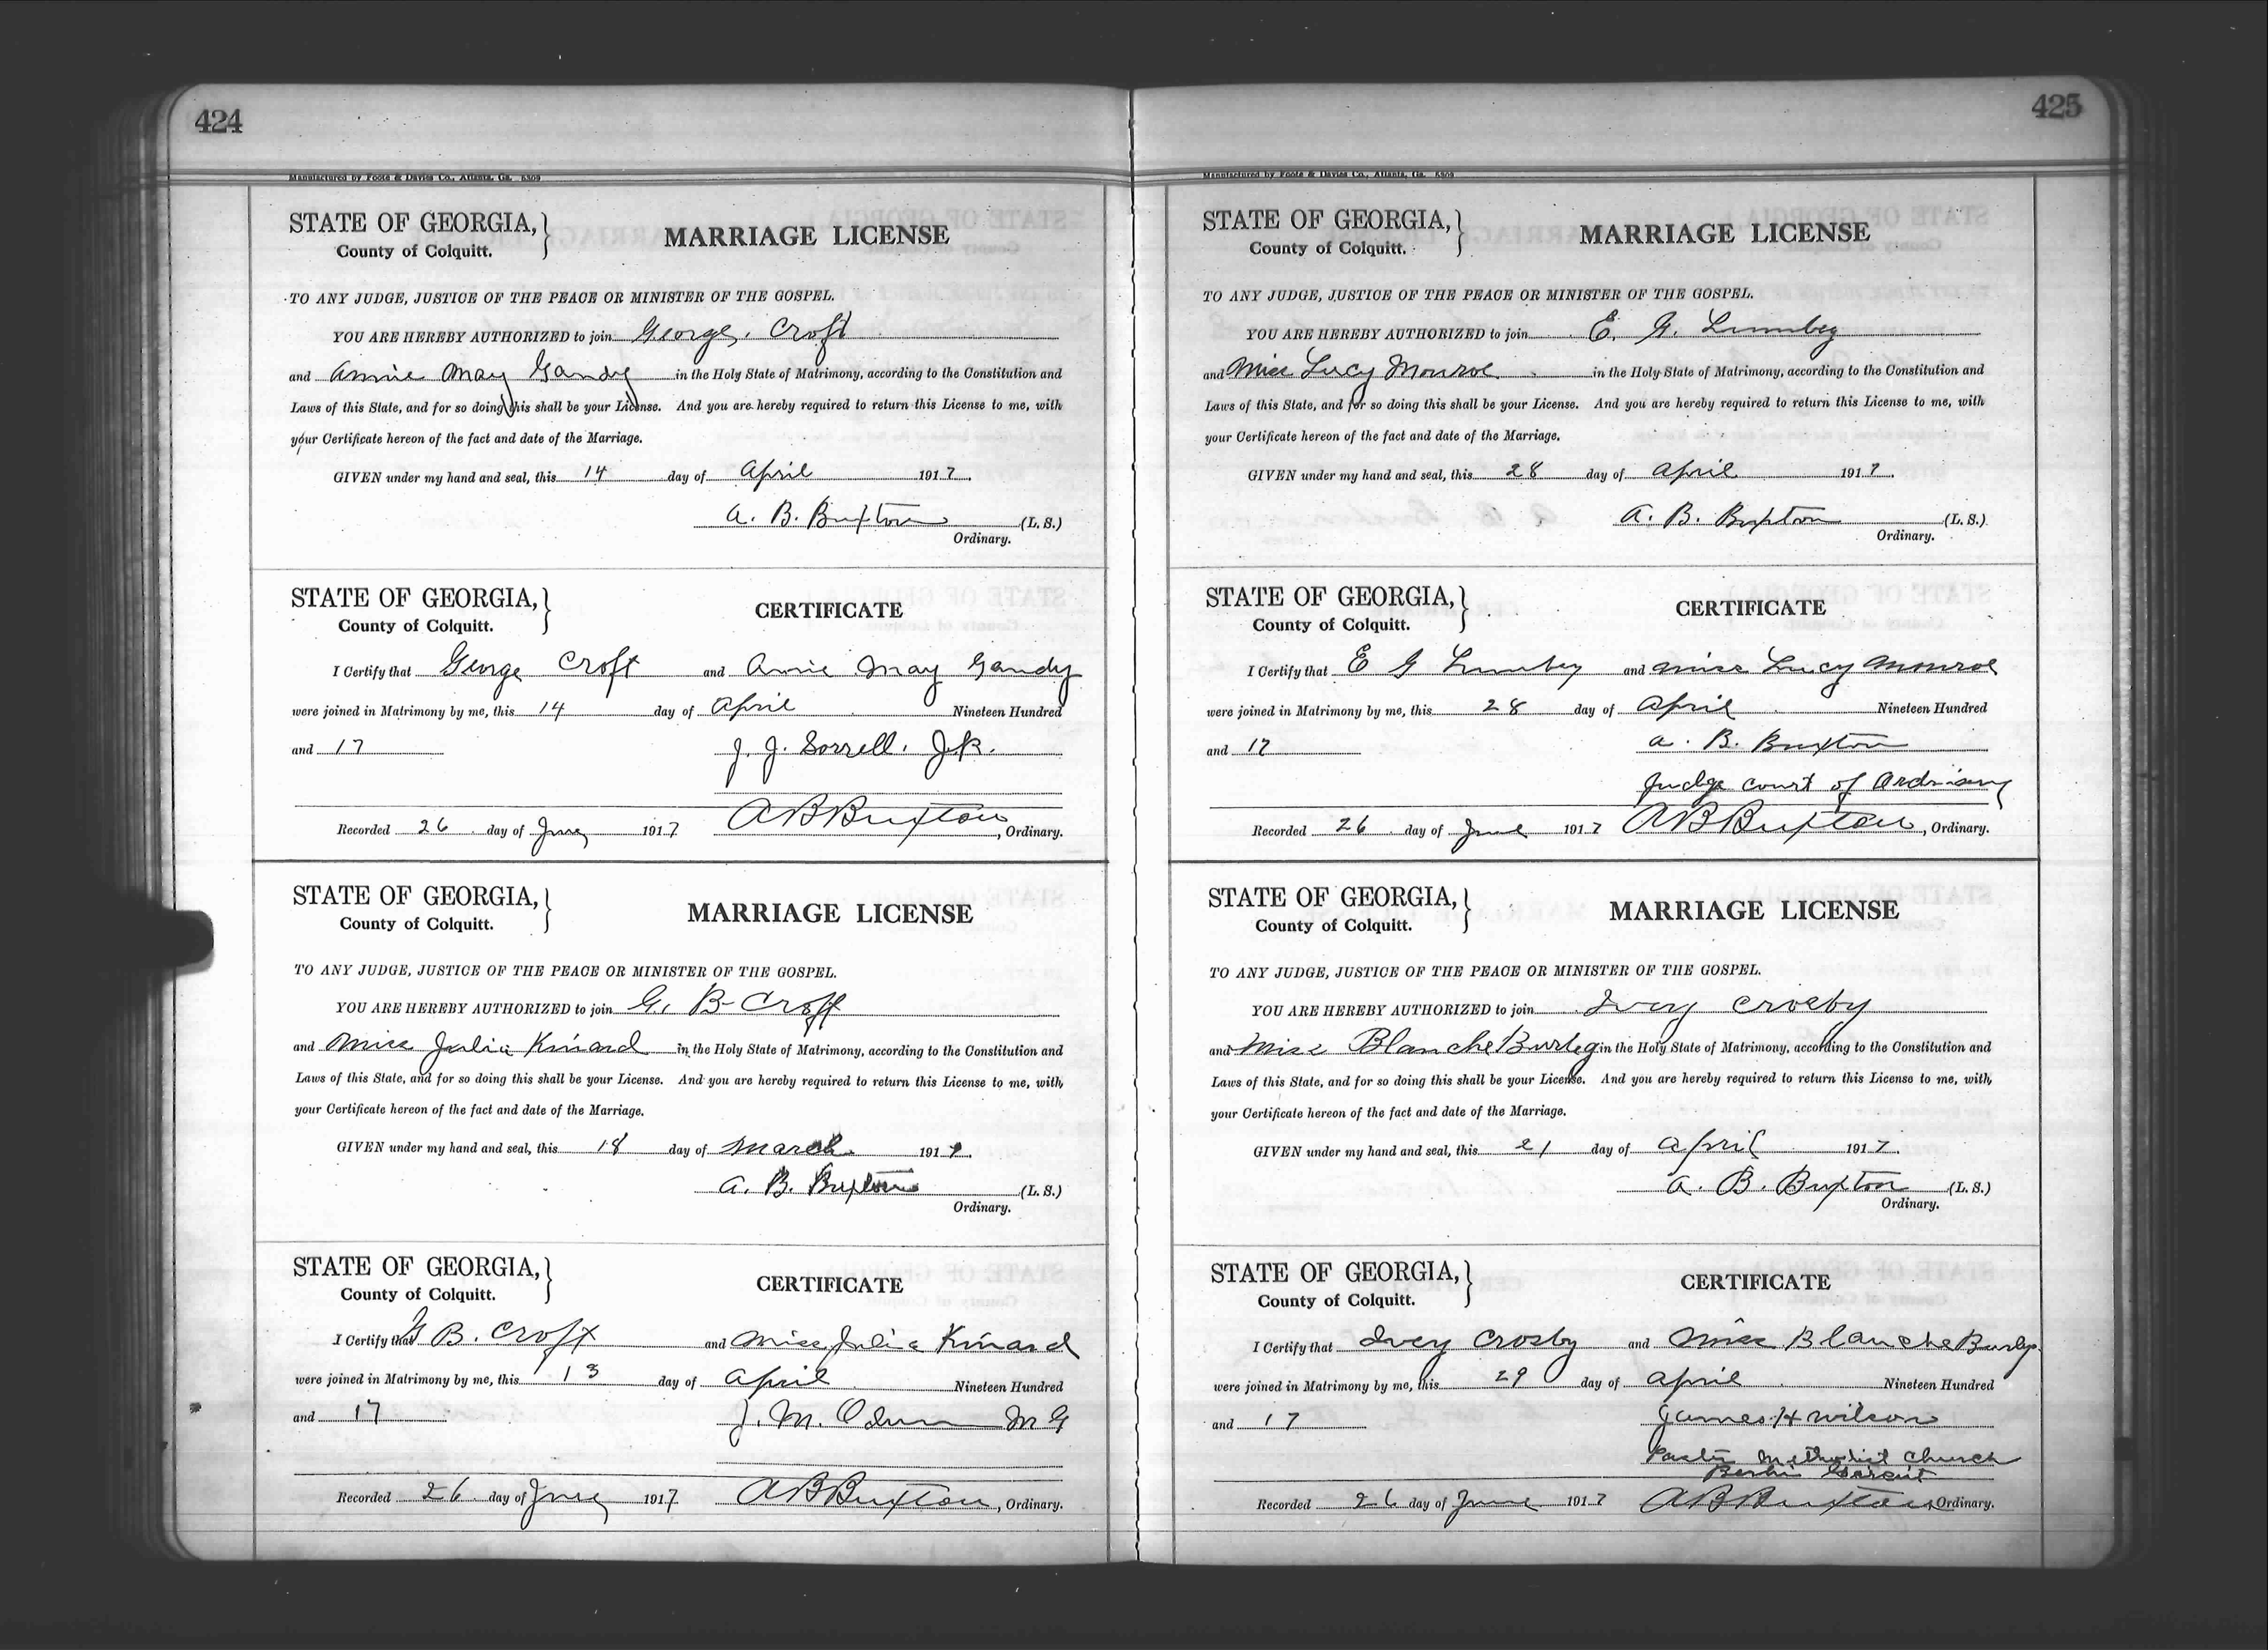 424
Manufactured by Foote & Davies Co., Atlanta, Ga.
STATE OF GEORGIA,
County of Colquitt.
MARRIAGE LICENSE
TO ANY JUDGE, JUSTICE OF THE PEACE OR MINISTER OF THE GOSPEL.
YOU ARE HEREBY AUTHORIZED to join George. Croft
and Annie May Gandy in the Holy State of Matrimony, according to the Constitution and
Laws of this State, and for so doing this shall be your License. And you are hereby required to return this License to me, with
your Certificate hereon of the fact and date of the Marriage.
GIVEN under my hand and seal, this 14 day of April 1917.
A. B. Buxton (L. S.)
Ordinary.
STATE OF GEORGIA,
County of Colquitt.
CERTIFICATE
I Certify that George Croft and Annie May Gandy
were joined in Matrimony by me, this 14 day of April Nineteen Hundred
and 17 J. J. Sorrell. J.P.
Recorded 26 day of June 1917 A B Buxton, Ordinary.
STATE OF GEORGIA,
County of Colquitt.
MARRIAGE LICENSE
TO ANY JUDGE, JUSTICE OF THE PEACE OR MINISTER OF THE GOSPEL.
YOU ARE HEREBY AUTHORIZED to join G. B. Croft
and Miss Julia Kinard in the Holy State of Matrimony, according to the Constitution and
Laws of this State, and for so doing this shall be your License. And you are hereby required to return this License to me, with
your Certificate hereon of the fact and date of the Marriage.
GIVEN under my hand and seal, this 18 day of March 1917.
A. B. Buxton (L. S.)
Ordinary.
STATE OF GEORGIA,
County of Colquitt.
CERTIFICATE
I Certify that G B. Croft and Miss Julia Kinard
were joined in Matrimony by me, this 13 day of April Nineteen Hundred
and 17 J. M. Odum M G
Recorded 26 day of June 1917 A B Buxton, Ordinary.
425
Manufactured by Foote & Davies Co., Atlanta, Ga.
STATE OF GEORGIA,
County of Colquitt.
MARRIAGE LICENSE
TO ANY JUDGE, JUSTICE OF THE PEACE OR MINISTER OF THE GOSPEL.
YOU ARE HEREBY AUTHORIZED to join E. G.
and Miss Lucy Monroe in the Holy State of Matrimony, according to the Constitution and
Laws of this State, and for so doing this shall be your License. And you are hereby required to return this License to me, with
your Certificate hereon of the fact and date of the Marriage.
GIVEN under my hand and seal, this 28 day of April 1917.
A. B. Buxton (L. S.)
Ordinary.
STATE OF GEORGIA,
County of Colquitt.
CERTIFICATE
I Certify that E G and Miss Lucy Monroe
were joined in Matrimony by me, this 28 day of April Nineteen Hundred
and 17 A. B. Buxton
Judge court of Ordinary
Recorded 26 day of June 1917 A B Buxton, Ordinary.
STATE OF GEORGIA,
County of Colquitt.
MARRIAGE LICENSE
TO ANY JUDGE, JUSTICE OF THE PEACE OR MINISTER OF THE GOSPEL.
YOU ARE HEREBY AUTHORIZED to join Ivey Crosby
and Miss Blanche in the Holy State of Matrimony, according to the Constitution and
Laws of this State, and for so doing this shall be your License. And you are hereby required to return this License to me, with
your Certificate hereon of the fact and date of the Marriage.
GIVEN under my hand and seal, this 21 day of April 1917.
A. B. Buxton (L. S.)
Ordinary.
STATE OF GEORGIA,
County of Colquitt.
CERTIFICATE
I Certify that Ivey Crosby and Miss Blanche
were joined in Matrimony by me, this 29 day of April Nineteen Hundred
and 17 James H Wilson
Pastor Methodist Church
Berlin Circuit
Recorded 26 day of June 1917 A B Buxton Ordinary.